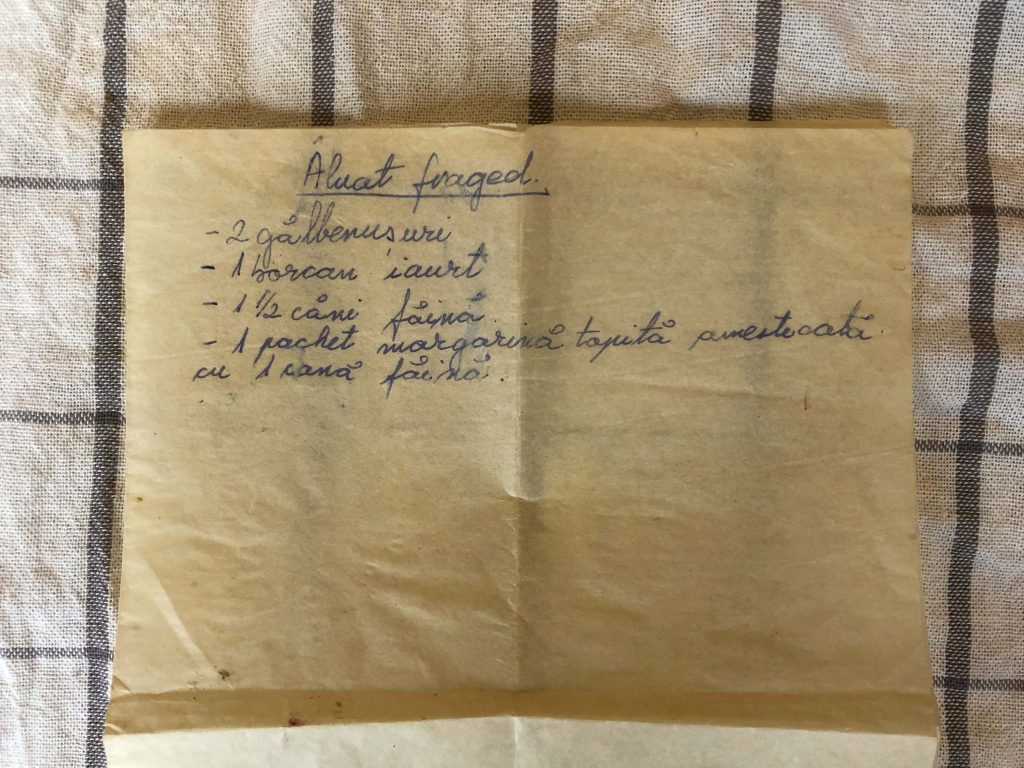 Aluat fraged.
- 2 gălbenusuri
- 1 borcan iaurt
- 1 1/2 căni făină.
- 1 pachet margarină topită amestecată
cu 1 cană făină.